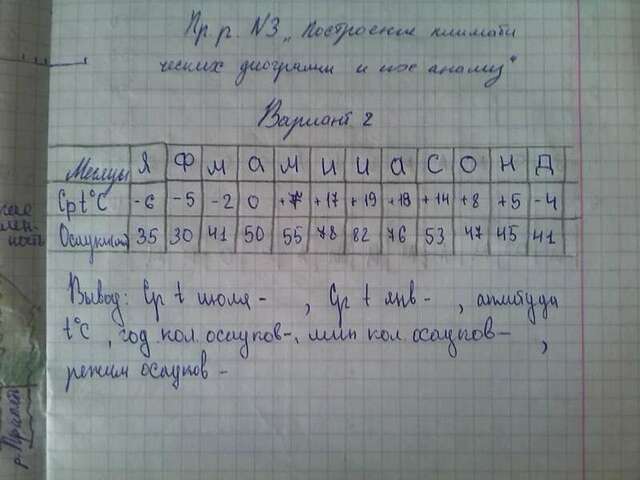 Пр.р. №3 „Построение климати
ческих диаграмм и их анализ"
Вариант 2
Месяцы Я Ф М А М И И А С О Н Д
Ср t°C -6 -5 -2 0 +7 +17 +19 +18 +14 +8 +5 -4
Осадки 35 30 41 50 55 78 82 76 53 47 45 41
Вывод: Ср t июля - , Ср t янв - , амплтуда
t°C , год кол. осадков-, мин кол. осадков- ,
режим осадков -